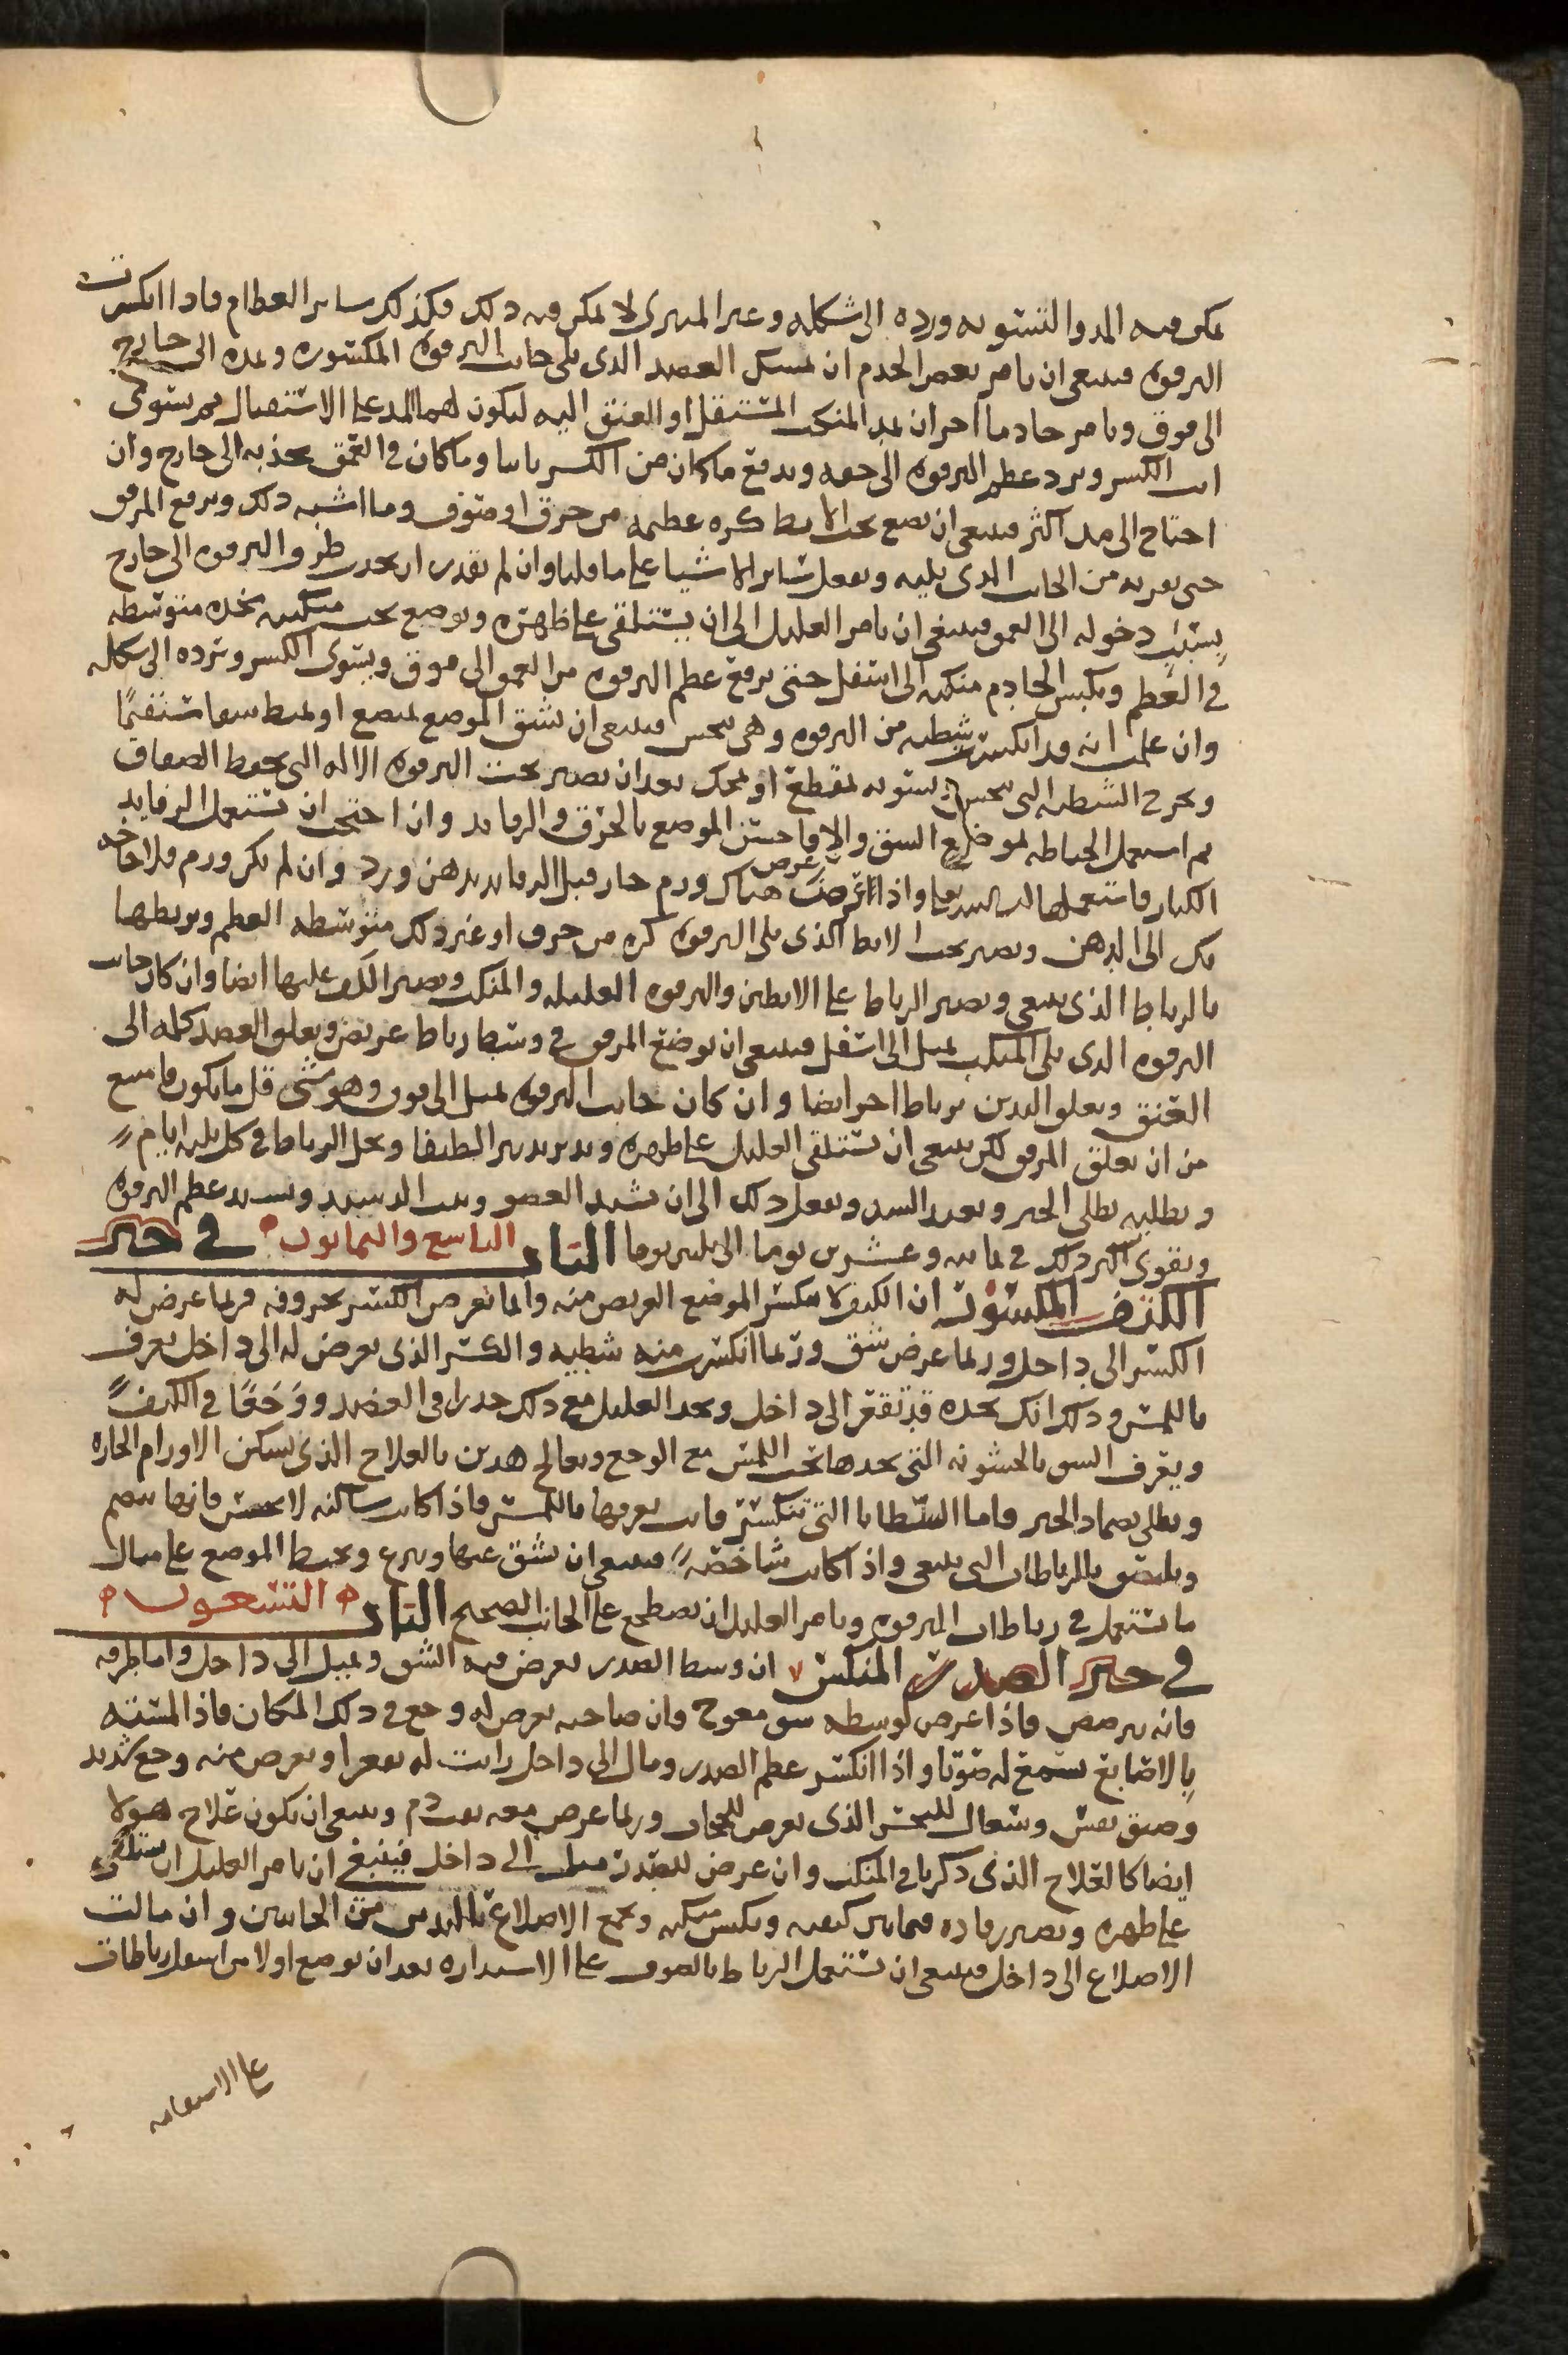 يمكن فيه المد والتسويه ورده الى شكله وغير المبرى لا يمكن فيه ذلك فكذلك ساير العظام فاذا انكسرت
الترقوه فينبغى ان يامر بعض الخدم ان يمسك العضد الذى يلى جانب الترقوه المكسوره ويمده الى خارج
الى فوق ويامر خادما اخر ان يمد المنكب المستقل او العنق اليه ليكون لهما المد على الاستقبال ثم يستوى
انت الكسر ويرد عظم الترقوه الى حقه ويدفع ما كان من الكسر ناتيا وما كان فى العمق يجذبه الى خارج وان
احتاج الى مد اكثر فينبغى ان يضع تحت الابط كره عظيمه من خرق او صوف وما اشبه ذلك ويرفع المرفق
حتى يقربه من الجانب الذى يليه ويفعل ساير الاشيا على ما قلنا وان لم تقدر ان تجذب طرف الترقوه الى خارج
بسبب دخوله الى العمق فينبغى ان يامر العليل الى ان يستلقى على ظهره ويوضع تحت منكبيه مخده متوسطه
فى العظم ويكبس الخادم منكبه الى اسفل حتى يرفع عظم الترقوه من العمق الى فوق ويسوى الكسر وترده الى شكله
وان علمت انه قد انكسرت شظيه من الترقوه وهى تنخس فينبغى ان تشق الموضع بمبضع او بمبط شقا مستقيمًا
وتخرج الشظيه التى تنخس وتسويه بمقطع او بمحك بعد ان تصير تحت الترقوه الاله التى تحفظ الصفاق
ثم استعمل الخياطه لموضع الشق والا فاحش الموضع بالخرق والرفايد وان احتجت ان تستعمل الرفايد
الكبار فاستعملها واذا عرض هناك ورم حار فبل الرفايد بدهن ورد وان لم يكن ورم فلا حاجه
بك الى الدهن وتصير تحت الابط الذى يلى الترقوه كره من خرق او غير ذلك متوسطه العظم ويربطها
بالرباط الذى ينبغى ويصير الرباط على الابطين والترقوه العليله والمنكب ويصير اللف عليها ايضا وان كان جانب
الترقوه الذى يلى المنكب يميل الى اسفل فينبغى ان يوضع المرفق فى وسط رباط عريض ويعلق العضد كله الى
العنق ويعلق اليدين برباط اخر ايضا وان كان جانب الترقوه يميل الى فوق وهو شى قل ما يكون فامنع
من ان يعلق المرفق لكن ينبغى ان يستلقى العليل على ظهره ويدبر تدبيرا لطيفا ويحل الرباط فى كل ثلثه ايام
ويطليه بطلى الجبر ويعيد الشد ويفعل ذلك الى ان يشتد العضو ويشتد عظم الترقوه
ويقوى اكثر ذلك فى ثمانيه وعشرين يوما الى ثلثين يوما الباب التاسع والثمانون فى جبر
الكتف المكسور ان الكتف لا ينكسر الموضع العريض منه وانما يعرض الكسر بحروفه فربما عرض له
الكسر الى داخل وربما عرض شق وربما انكسرت منه شظيه والكسر الذى يعرض له الى داخل يعرف
باللمس وذلك انك تجده قد تقعر الى داخل وتجد العليل مع ذلك خدرا فى العضد ووجعًا فى الكتف
ويعرف الشق بالخشونه التى تجدها تحت اللمس مع الوجع ويعالج هذين بالعلاج الذى يسكن الاورام الحاره
ويطلى بضماد الجبر فاما الشظايا التى تنكسر فانت تعرفها باللمس فاذا كانت ساكنه لا تنخس فانها تنضم
وتلتصق بالرباطات التى ينبغى واذا كانت شاخصه فينبغى ان تشق عنها وتنزع ويخيط الموضع على مثال
ما تستعمل فى رباطات الترقوه ويامر العليل ان يضطجع على الجانب الصحيح الباب التسعون
فى جبر الصدر المنكسر ان وسط الصدر يعرض فيه الشق ويميل الى داخل واما طرفه
فانه يترضض فاذا عرض لوسطه شق معوج فان صاحبه يعرض له وجع فى ذلك المكان فاذا لمسته
بالاصابع تسمع له صوتا واذا انكسر عظم الصدر ومال الى داخل رايت له تقعرا ويعرض منه وجع شديد
وضيق نفس وسعال للنخس الذى يعرض للحجاب وربما عرض معه نفث دم وينبغى ان يكون علاج هولا
ايضا كالعلاج الذى ذكرنا فى المنكب وان عرض للصدر ميل الى داخل فينبغى ان يامر العليل ان يستلقى
على ظهره ويصير رفاده فيما بين كتفيه ويكبس منكبيه ويجمع الاضلاع باليدين من الجانبين وان مالت
الاضلاع الى داخل فينبغى ان تستعمل الرباط بالصوف على الاستداره بعد ان يوضع اولا من اسفل رباطات
على الاستقامه